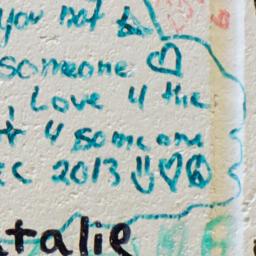 you not
someone ♡
, Love 4 the
4 someone
2013 ♡
talie